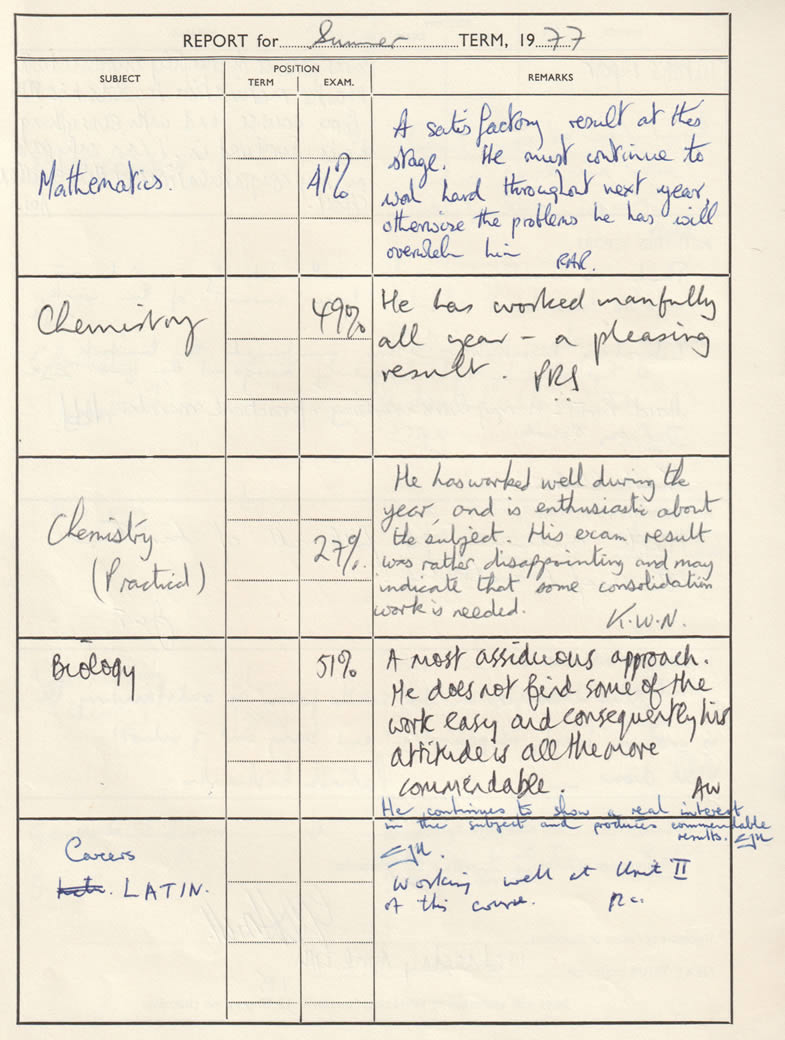 REPORT for Summer TERM, 1977
SUBJECT
POSITION
TERM
EXAM.
REMARKS
Mathematics.
41%
A satisfactory result at this
stage. He must continue to
work hard throughout next year,
otherwise the problems he has will
overwhelm him
RAR.
Chemistry
49%
He has worked manfully
all year – a pleasing
result. PRS
Chemistry
(Practical)
27%.
He has worked well during the
year, and is enthusiastic about
the subject. His exam result
was rather disappointing and may
indicate that some consolidation
work is needed.
K.W.N.
Biology
51%
A most assiduous approach.
He does not find some of the
work easy and consequently his
attitude is all the more
commendable. AW
He continues to show a real interest
in the subject and produces commendable
results.
Careers
LATIN.
Working well at Unit II
of this course.